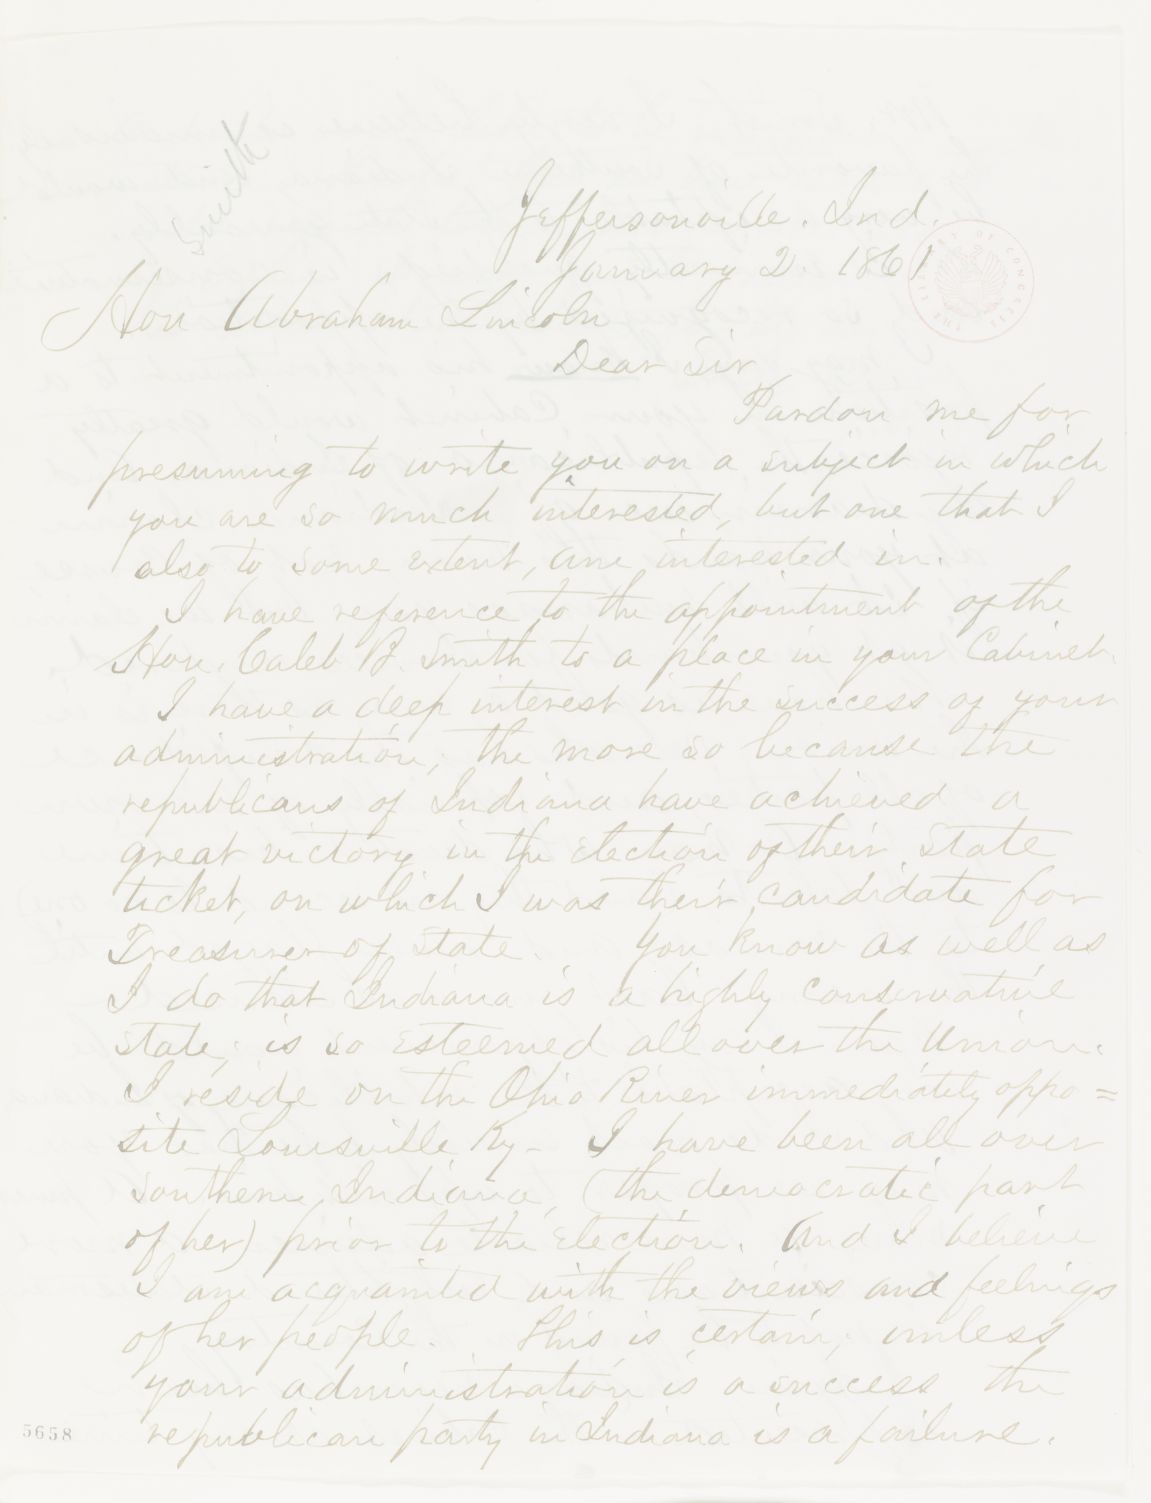 Smith
Jeffersonville. Ind.
January 2. 1861
THE LIBRARY OF CONGRESS
Hon Abraham Lincoln
Dear Sir
Pardon me for
presuming to write you on a subject in which
you are so much interested, but one that I
also to some extent, am interested in.
I have reference to the appointment of the
Hon. Caleb B. Smith to a place in your Cabinet.
I have a deep interest in the success of your
administration, the more so because the
republicans of Indiana have achieved a
great victory in the election of their State
ticket, on which I was their candidate for
Treasurer of State. You know as well as
I do that Indiana is a highly conservative
state; is so esteemed all over the Union.
I reside on the Ohio River immediately oppo=
site Louisville Ky- I have been all over
southern Indiana, (the democratic part
of her) prior to the election. And I believe
I am acquainted with the views and feelings
of her people. This is certain; unless
your administration is a success the
republican party in Indiana is a failure.
5658